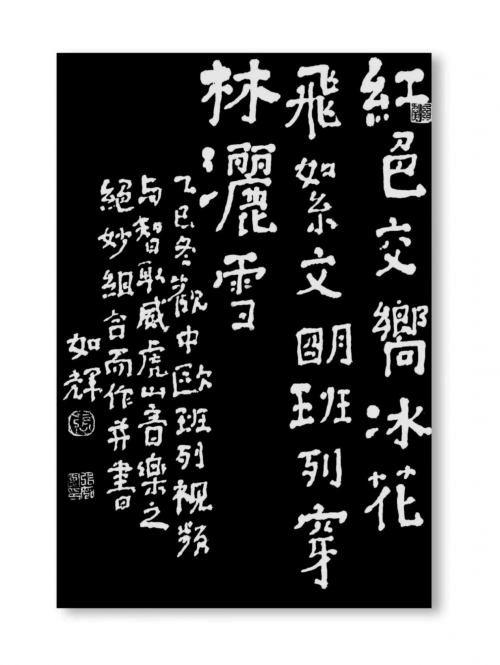 紅色交嚮冰花
飛絮文明班列穿
林灑雪
乙巳冬觀中歐班列視頻
与智取威虎山音樂之
絕妙組合而作并書
如輝